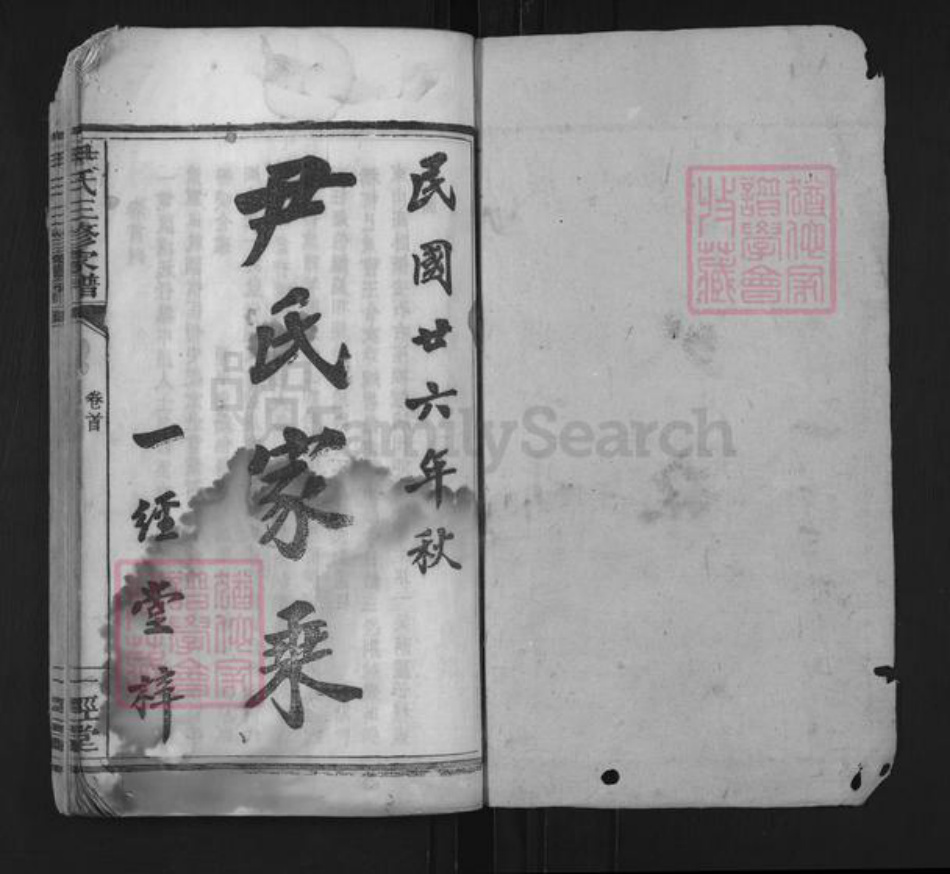 民國廿六年秋
尹氏家乘
一經堂梓
尹氏三修家譜
卷首
一經堂
猶他家譜學會收藏
猶他家譜學會收藏
FamilySearch